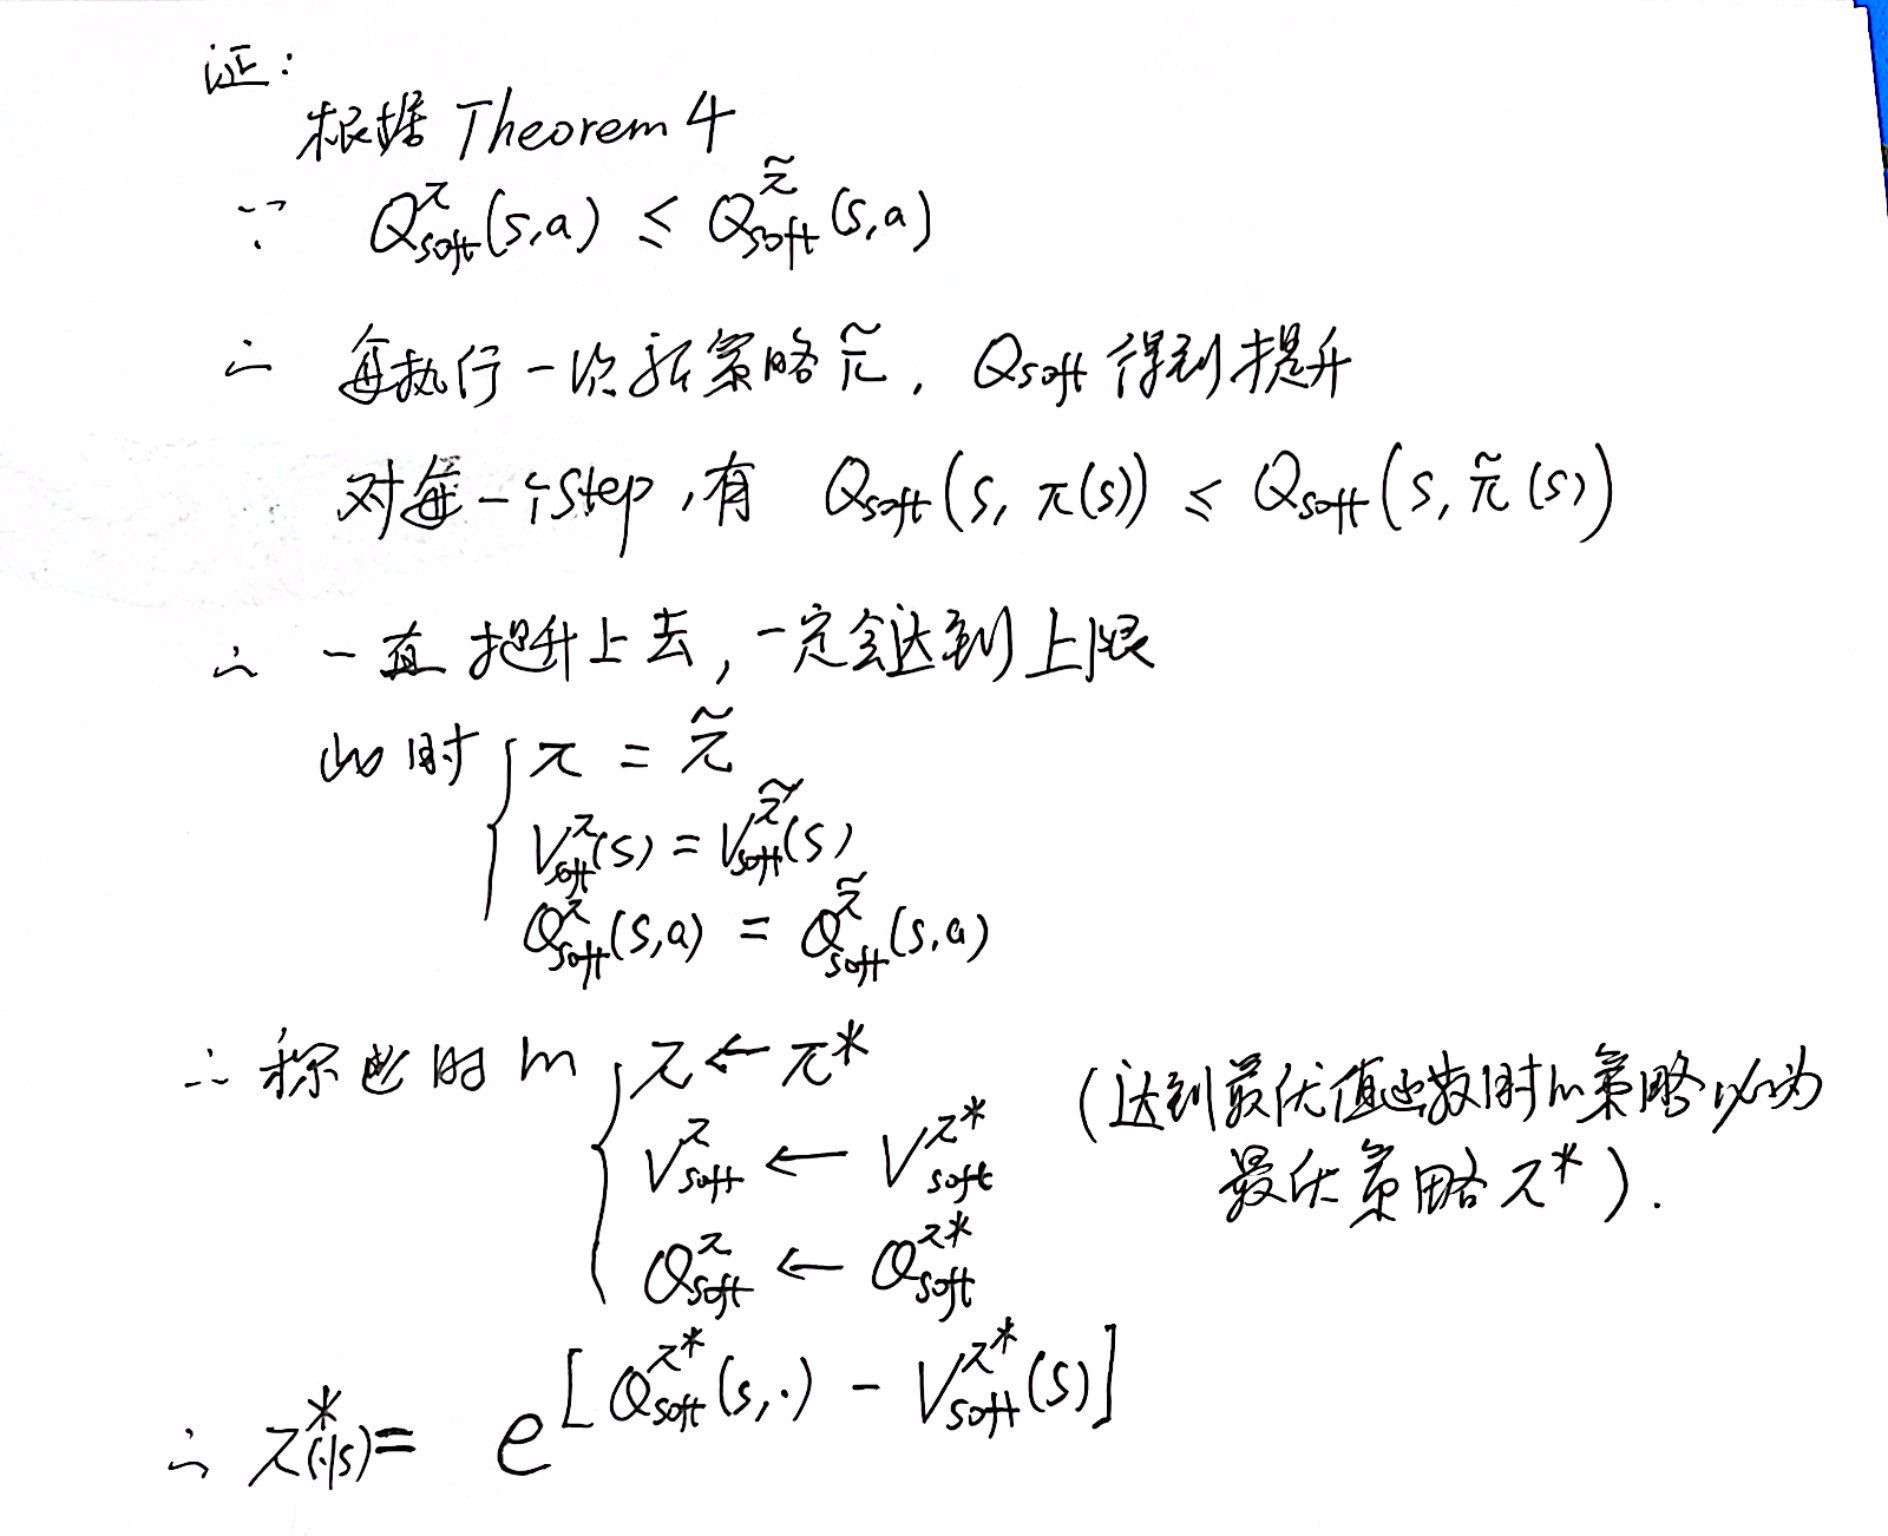 证:
根据 Theorem 4
∵ Q^π_soft(s,a) ≤ Q^π̃_soft(s,a)
∴ 每执行一次新策略 π̃, Qsoft 得到提升
对每一个step,有 Qsoft(s, π(s)) ≤ Qsoft(s, π̃(s))
∴ 一直提升上去,一定会达到上限
此时 { π = π̃
V^π_soft(s) = V^π̃_soft(s)
Q^π_soft(s,a) = Q^π̃_soft(s,a)
∴ 称此时的 { π ← π*
V^π_soft ← V^π*_soft
Q^π_soft ← Q^π*_soft
(达到最优值函数时的策略必为
最优策略 π*).
∴ π*(·|s) = e^[Q^π*_soft(s,·) - V^π*_soft(s)]